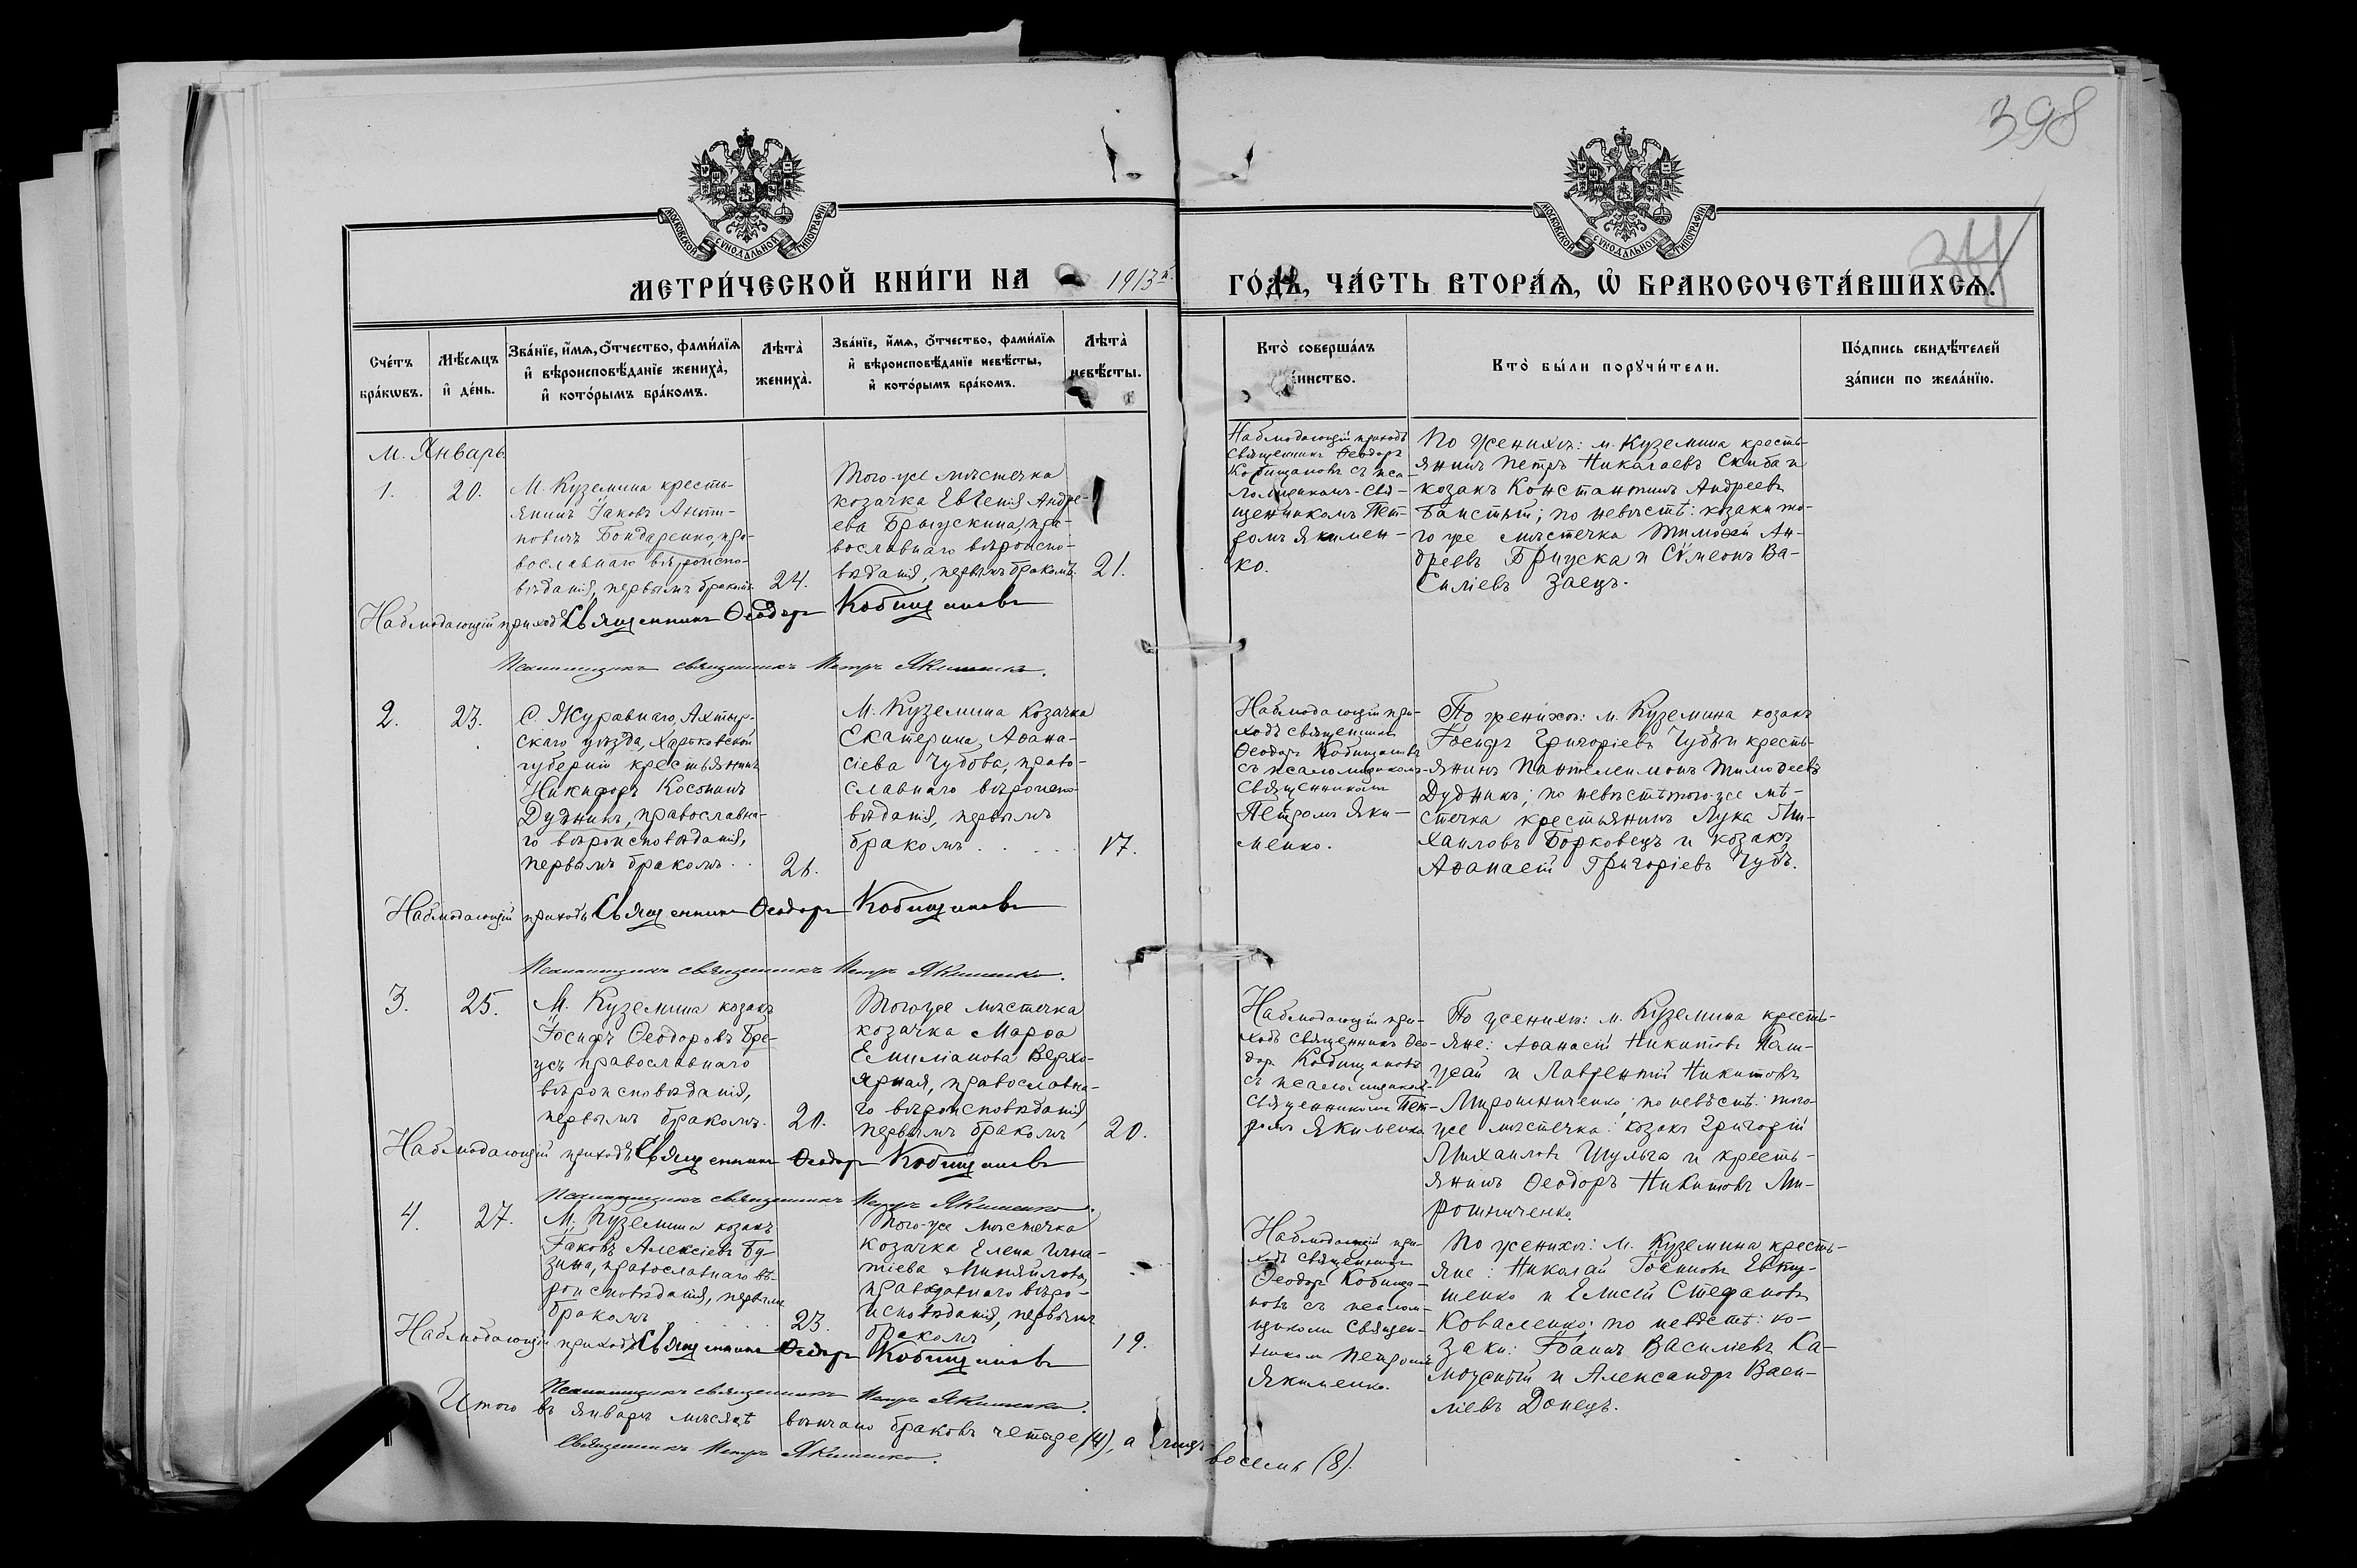 398
МОСКОВСКОЙ СУНОДАЛЬНОЙ ТИПОГРАФІИ
МОСКОВСКОЙ СУНОДАЛЬНОЙ ТИПОГРАФІИ
МЕТРИ́ЧЕСКОЙ КНИ́ГИ НА 1913й
ГО́ДЪ, ЧА́СТЬ ВТОРА́Ѧ, Ѽ БРАКОСОЧЕТА́ВШИХСѦ.
Сче́тъ бра́кѡвъ.
Мѣ́сѧцъ и҆ де́нь.
Зва́нїе, и҆́мѧ, ѻ҆́тчество, фами́лїѧ
и҆ вѣроисповѣ́данїе жениха̀,
и҆ кото́рымъ бра́комъ.
Лѣта̀ жениха̀.
Зва́нїе, и҆́мѧ, ѻ҆́тчество, фами́лїѧ
и҆ вѣроисповѣ́данїе невѣ́сты,
и҆ кото́рымъ бра́комъ.
Лѣта̀ невѣ́сты.
Кто̀ соверша́лъ
инство.
Кто̀ бы́ли порꙋчи́тели.
По́дпись свидѣ́телей
за́писи по жела́нїю.
М. Январь
1.
20.
М. Куземина кресть-
янинъ Іаковъ Анти-
повичъ Бондаренко, пра-
вославнаго вѣроиспо-
вѣданія, первымъ бракомъ.
24.
Того-же мѣстечка
козачка Евгенія Андре-
ева Брыускина, пра-
вославнаго вѣроиспо-
вѣданія, первымъ бракомъ.
21.
Наблюдающій приходъ
священникъ Ѳеодоръ
Кобищановъ съ пса-
ломщикомъ-свя-
щенникомъ Пет-
ромъ Якимен-
ко.
По женихѣ: м. Куземина кресть-
янинъ Петръ Николаевъ Скиба и
козакъ Константинъ Андреевъ
Баистый; по невѣстѣ: козаки то-
го же мѣстечка Тимоѳей Ан-
дреевъ Брiуска и Сѵмеонъ Ва-
силіевъ Заецъ.
Наблюдающій приходъ Священникъ Ѳеодоръ Кобищановъ
Псаломщикъ священникъ Петръ Якименко.
2.
23.
С. Журавнаго, Ахтыр-
скаго уѣзда, Харьковской
губерніи крестьянинъ
Никифоръ Косминъ
Дудникъ, православна-
го вѣроисповѣданія,
первымъ бракомъ.
21.
М. Куземина козачка
Екатерина Аѳана-
сіева Чубова, право-
славнаго вѣроиспо-
вѣданія, первымъ
бракомъ.
17.
Наблюдающій при-
ходъ священникъ
Ѳеодоръ Кобищановъ
съ псаломщикомъ-
священникомъ
Петромъ Яки-
менко.
По женихѣ: м. Куземина козакъ
Іосифъ Григоріевъ Чубъ и кресть-
янинъ Пантелеимонъ Тимоѳеевъ
Дудникъ; по невѣстѣ: того-же мѣ-
стечка крестьянинъ Лука Ми-
хаиловъ Борковецъ и козакъ
Аѳанасій Григоріевъ Чубъ.
Наблюдающій приходъ Священникъ Ѳеодоръ Кобищановъ
Псаломщикъ священникъ Петръ Якименко.
3.
25.
М. Куземина козакъ
Іосифъ Ѳеодоровъ Бре-
усъ православнаго
вѣроисповѣданія,
первымъ бракомъ.
20.
Того-же мѣстечка
козачка Марѳа
Емиліанова Верхо-
ярная, православна-
го вѣроисповѣданія,
первымъ бракомъ
20.
Наблюдающій при-
ходъ священникъ Ѳео-
доръ Кобищановъ
съ псаломщикомъ-
священникомъ Пет-
ромъ Якименко
По женихѣ: м. Куземина кресть-
яне: Аѳанасій Никитовъ Паш-
жай и Лаврентій Никитовъ
Мирошниченко; по невѣстѣ: того-
же мѣстечка: козакъ Григорій
Михаиловъ Шульга и кресть-
янинъ Ѳеодоръ Никитовъ Ми-
рошниченко.
Наблюдающій приходъ Священникъ Ѳеодоръ Кобищановъ
Псаломщикъ священникъ Петръ Якименко.
4.
27.
М. Куземина козакъ
Іаковъ Алексіевъ Бу-
зина, православнаго вѣ-
роисповѣданія, первымъ
бракомъ
23.
Того-же мѣстечка
козачка Елена Игна-
тіева Миняйлова,
православнаго вѣро-
исповѣданія, первымъ
бракомъ
19.
Наблюдающій при-
ходъ священникъ
Ѳеодоръ Кобища-
новъ съ псалом-
щикомъ священ-
никомъ Петромъ
Якименко.
По женихѣ: м. Куземина кресть-
яне: Николай Іосифовъ Евту-
шенко и Елисей Стефановъ
Коваленко; по невѣстѣ: ко-
заки: Іоаннъ Василіевъ Ка-
и Александръ Васи-
ліевъ Донецъ.
Наблюдающій приходъ Священникъ Ѳеодоръ Кобищановъ
Псаломщикъ священникъ Петръ Якименко.
Итого въ январѣ мѣсяцѣ вѣнчано браковъ четыре (4), а лицъ восемь (8).
Священникъ Петръ Якименко.